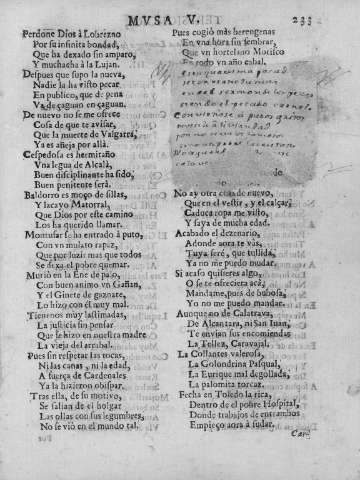 MUSA V. 233
Perdone Dios à Lobrezno
Por su infinita bondad,
Que ha dexado sin amparo,
Y muchacha à la Lujan.
Despues que supo la nueva,
Nadie la ha visto pecar
En publico, que de pena
Va de çaguan en çaguan.
De nuevo no se me ofrece
Cosa de que te avisar,
Que la muerte de Valgarra,
Ya es añeja por allà.
Cespedosa es hermitaño
Vna legua de Alcalà,
Buen disciplinante ha sido,
Buen penitente serà.
Baldorro es moço de sillas,
Y lacayo Matorral,
Que Dios por este camino
Los ha querido llamar.
Montufar se ha entrado à puto,
Con vn mulato rapiz,
Que por luzir mas que todos
Se dexa el pobre quemar.
Muriò en la Ene de palo,
Con buen animo vn Gañan,
Y el Ginete de gaznate,
Lo hizo con èl muy mal.
Tienenos muy lastimadas,
La justicia sin pensar
Que se hizo en nuestra madre
La vieja del arrabal.
Pues sin respetar las tocas,
Ni las canas, ni la edad,
A fuerça de Cardenales
Ya la hizieron obispar.
Tras ella, de su motivo,
Se salian de el hogar
Las ollas con sus legumbres,
No se viò en el mundo tal.
Pues cogiò mas berengenas
En vna hora sin sembrar,
Que vn hortelano Morisco
En todo vn año cabal.
No ay otra cosa de nuevo,
Que en el vestir, y el calçar,
Caduca ropa me visto,
Y saya de mucha edad.
Acabado el dezenario,
Adonde aora te vàs,
Tuya serè, que tullida,
Ya no me puedo mudar.
Si acaso quisieres algo,
O se te ofreciera acà,
Mandame, pues de bubosa,
Yo no me puedo mandar.
Aunque no de Calatrava,
De Alcantara, ni San Iuan,
Te envian sus encomiendas
La Tellez, Caravajal,
La Collantes valerosa,
La Golondrina Pasqual,
La Eurique mal degollada,
La palomita torcaz.
Fecha en Toledo la rica,
Dentro del pobre Hospital,
Donde trabajos de entrambos
Empieço aora à sudar.
Car-